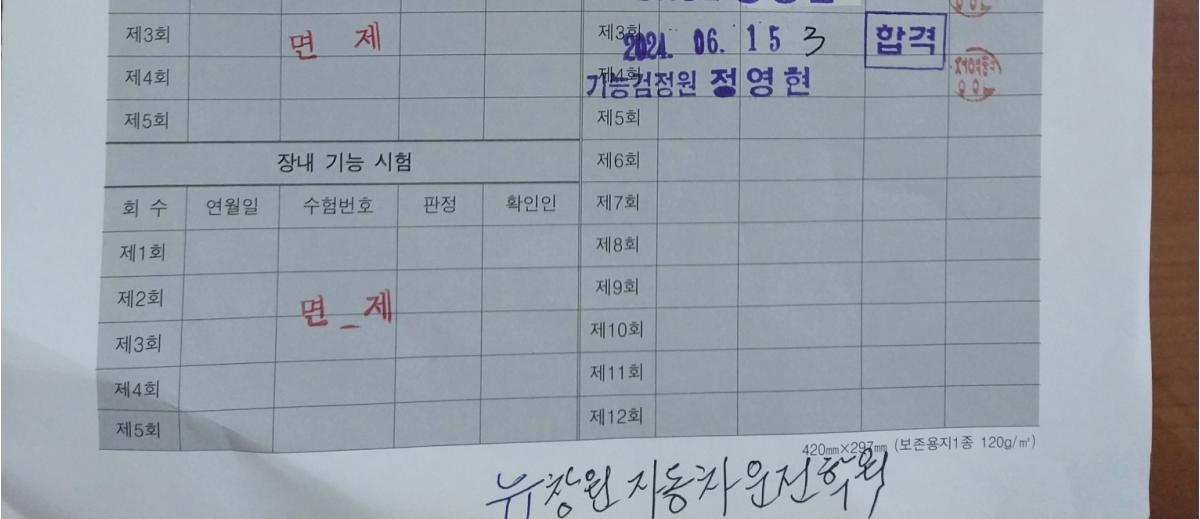 제3회 면 제
제4회
제5회
장내 기능 시험
회 수 연월일 수험번호 판정 확인인
제1회
제2회 면 제
제3회
제4회
제5회
제3회 2024. 06. 15 3 합격
제4회 기능검정원 정영현
제5회
제6회
제7회
제8회
제9회
제10회
제11회
제12회
420㎜×297㎜ (보존용지1종 120g/㎡)
뉴창원 자동차 운전학원